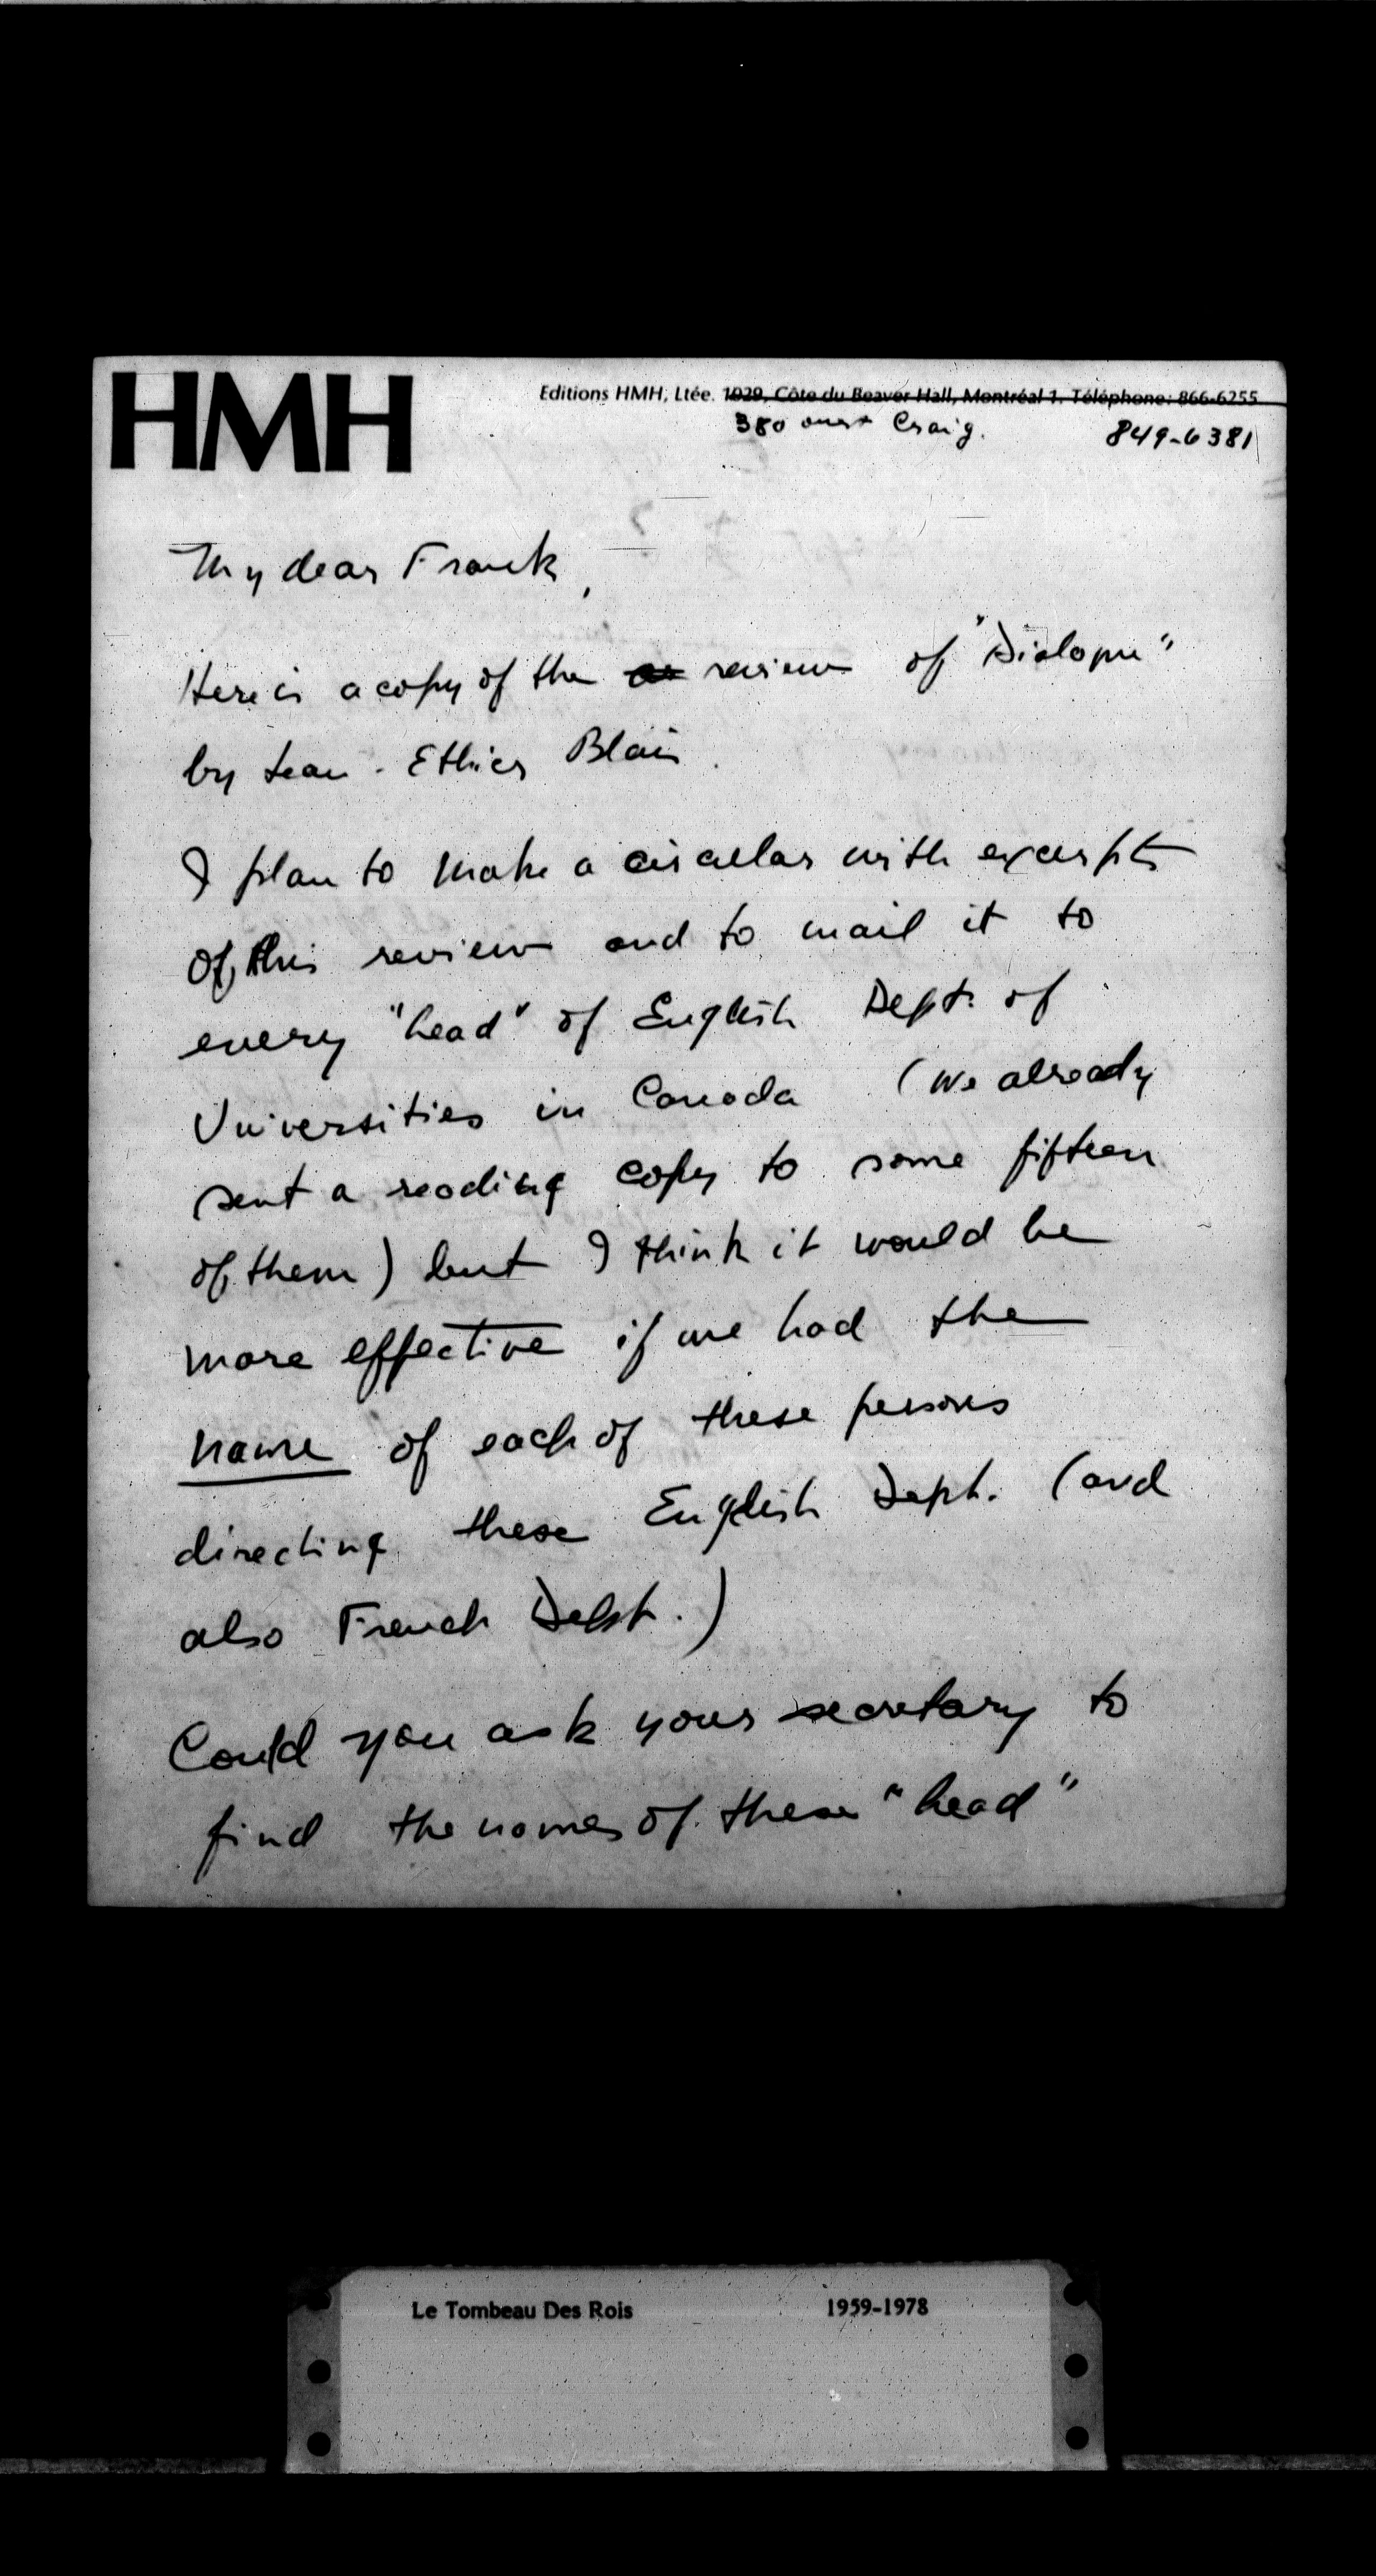 HMH
Editions HMH, Ltée. 1029, Côte du Beaver Hall, Montréal 1. Téléphone: 866-6255
380 ouest Craig. 849-6381
My dear Frank,
Here is a copy of the review of "Dialogue"
by Jean-Ethier Blais.
I plan to make a circular with excerpts
of this review and to mail it to
every "head" of English Dept. of
Universities in Canada (we already
sent a reading copy to some fifteen
of them) but I think it would be
more effective if we had the
name of each of these persons
directing these English Dept. (and
also French Dept.)
Could you ask your secretary to
find the names of these "head"
Le Tombeau Des Rois 1959-1978